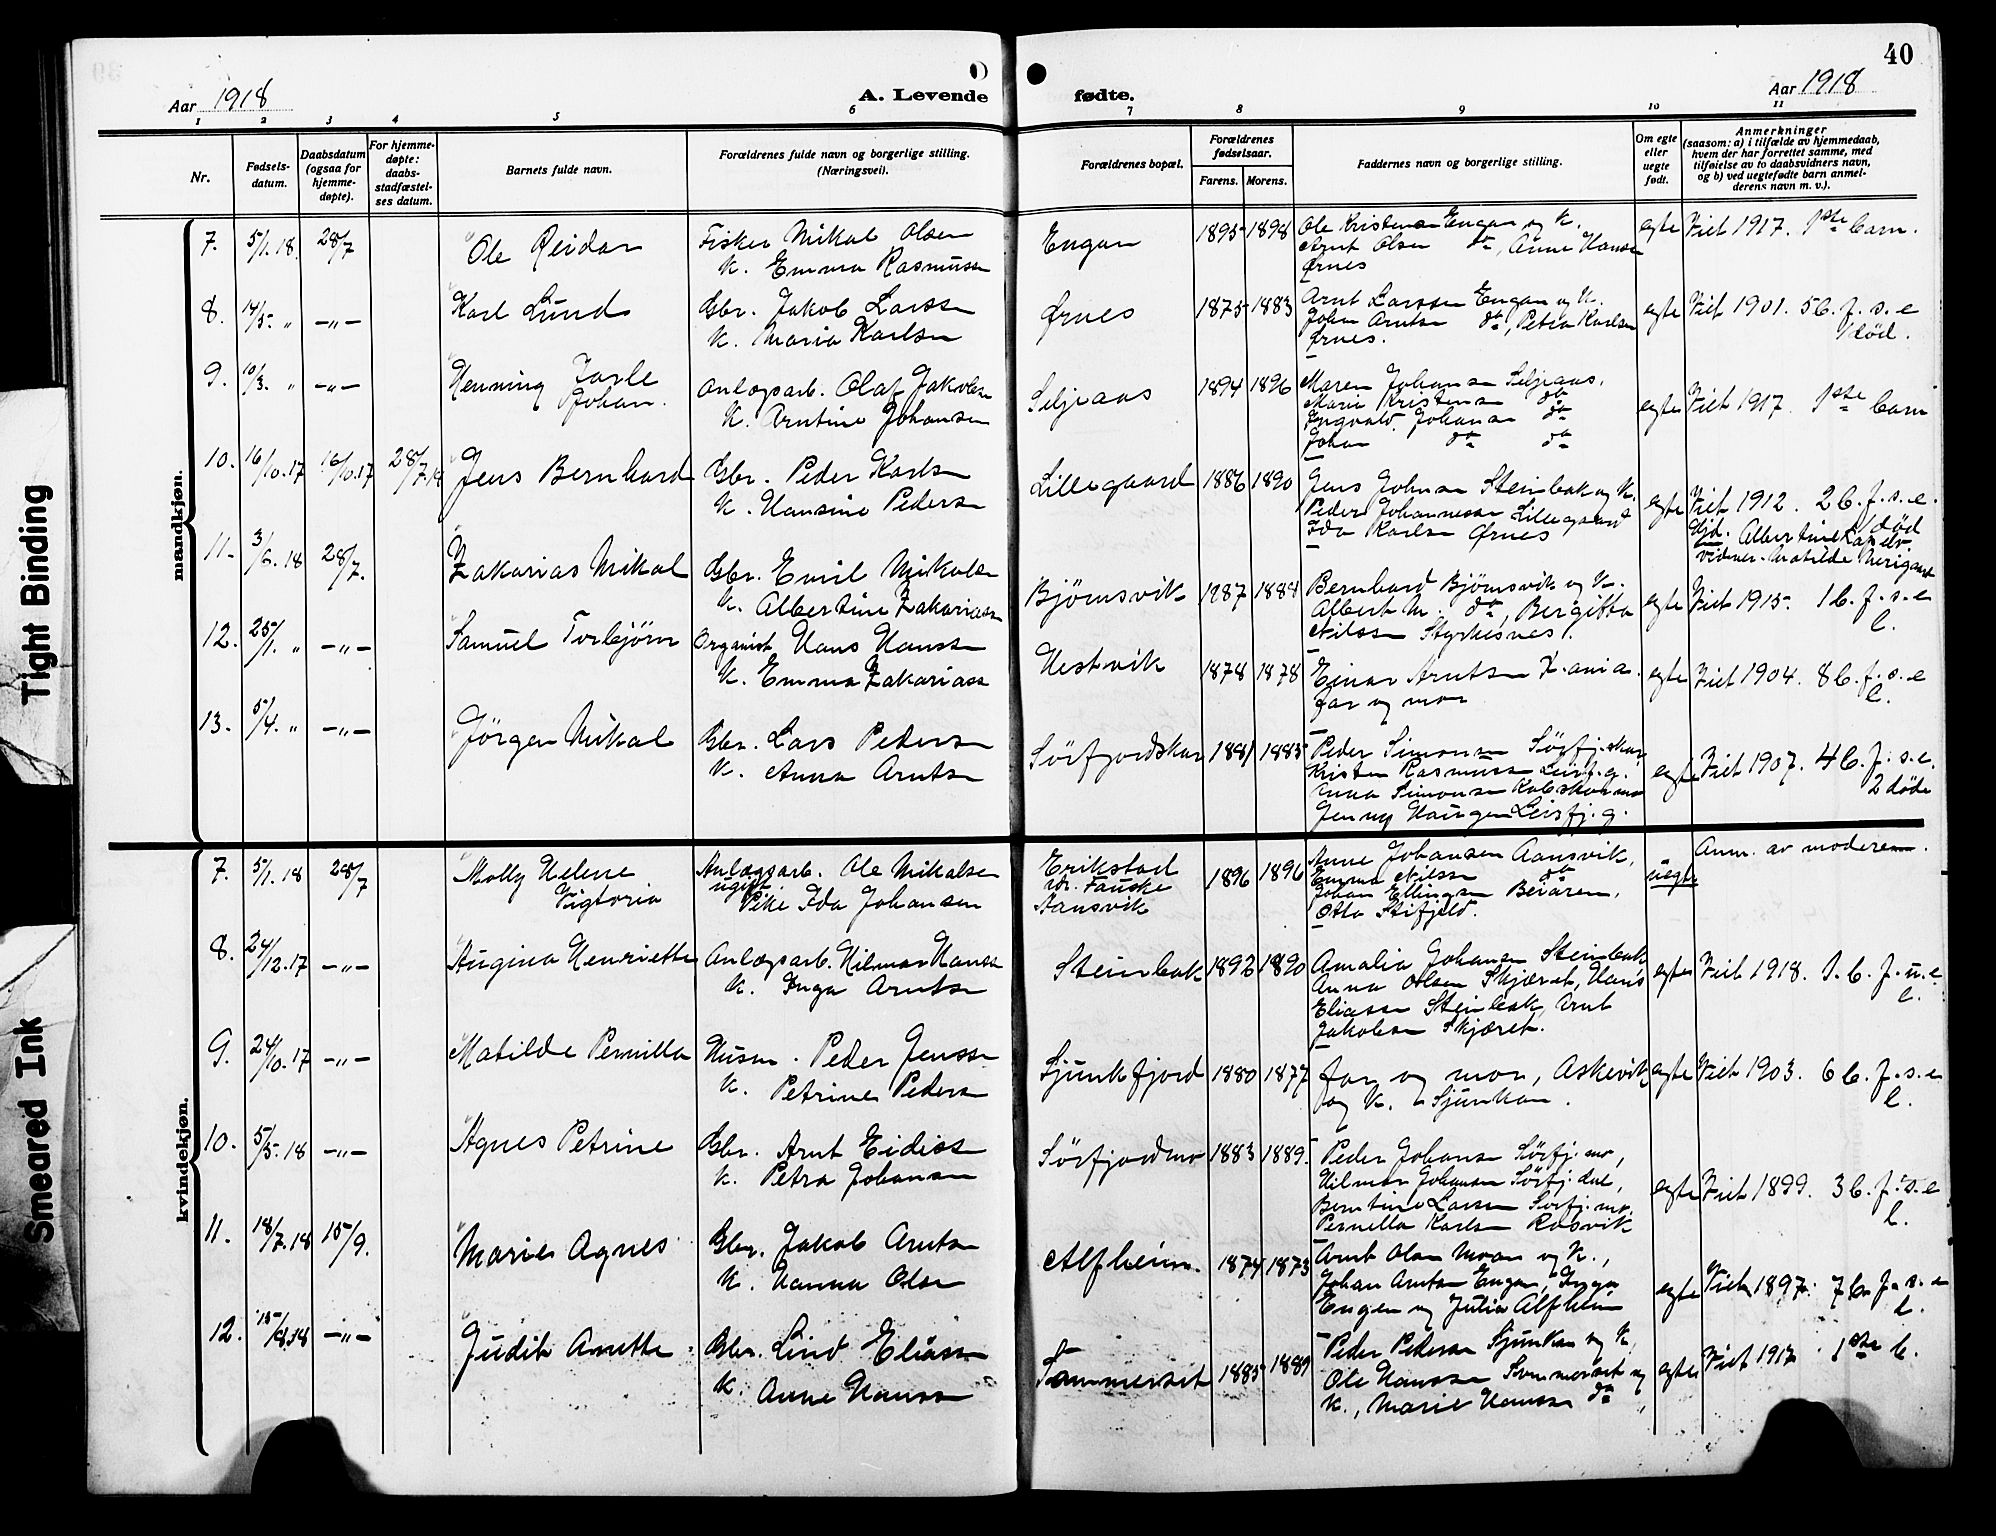 40
Aar 1918
A. Levende
fødte.
Aar 1918
1 2 3 4 5 6 7 8 9 10 11
Nr.
Fødsels-
datum.
Daabsdatum
(ogsaa for
hjemme-
døpte).
For hjemme-
døpte:
daabs-
stadfæstel-
ses datum.
Barnets fulde navn.
Forældrenes fulde navn og borgerlige stilling.
(Næringsvei).
Forældrenes bopæl.
Forældrenes
fødselsaar.
Farens. Morens.
Faddernes navn og borgerlige stilling.
Om egte
eller
uegte
født.
Anmerkninger
(saasom: a) i tilfælde av hjemmedaab,
hvem der har forrettet samme, med
tilføielse av to daabsvidners navn,
og b) ved uegtefødte barn anmel-
derens navn m. v.).
mandkjøn.
7. 5/1.18. 28/7 Ole Reidar
Fisker Mikal Olsen
K. Emma Rasmussen
Engan 1895 1898
Ole Kristensen Engan og K.
Arnt Olsen do, Anne Hansen
Ørnes
egte Viet 1917. 1ste barn.
8. 14/5 „ -„- Karl Lund
Gbr. Jakob Larssen
K. Maria Karlsen
Ørnes 1875 1883
Arnt Larssen Engan og K.
Johan Arntsen do, Petra Karlsen
Ørnes.
egte Viet 1901. 5 b. f. s. e
1 død.
9. 10/3. „ -„- Henning Jarle
Johan.
Anlægsarb. Olaf Jakobsen
K. Arntine Johansen
Seljeaas 1894 1896
Maren Johansen Seljeaas.
Marie Kristensen do
Ingvald Johansen do
Johan do do
egte Viet 1917. 1ste barn
10. 16/10.17 16/10.17 28/7.18 Jens Bernhard
Gbr. Peder Karlsen
K. Hansine Pedersen
Lillegaard 1886 1890
Jens Johnsen Steinbak og K.
Peder Johannessen Lillegaard
Ida Karlsen Ørnes
egte Viet 1912. 2 b. f. s. e.
1 død
Hjd. Albertine
vidner. Matilde
11. 3/6.18 28/7. Zakarias Mikal
Gbr. Emil Mikalsen
K. Albertine Zakariassen
Bjørnsvik 1887 1884
Bernhard Bjørnsvik og K.
Albert M. do, Bergitta
Nilssen Styrkesnes.
egte Viet 1915. 1 b. f. s. e
l.
12. 25/1. „ -„- Samuel Torbjørn
Organist Hans Hanssen
K. Emma Zakariassen
Hestvik 1878 1878
Einar Arntsen
far og mor
egte Viet 1904. 8 b. f. s. e
l.
13. 5/4. „ -„- Jörgen Mikal
Gbr. Lars Pedersen
K. Anna Arntsen
Sörfjordskar 1881 1885
Peder Simonsen Sörfj.skar
Kristen Rasmussen Leirf.g.
Anna Simonsen
Jenny Haugen Leirfj.g.
egte Viet 1907. 4 b. f. s. e.
2 döde
kvindekjøn.
7. 5/1.18 28/7 Molly Helene
Vigtoria
Anlægsarb. Ole Mikalsen
ugift
Pike Ida Johansen
Erikstad
Fauske
Aansvik
1896 1896
Anne Johansen Aansvik,
Emma Nilssen do
Johan Ellingsen Beiaren,
Otto Stifjeld.
uegte Anm. av moderen.
8. 24/12.17 -„- Augina Henriette
Anlægsarb. Hilmar Hanssen
K. Inga Arntsen
Steinbak 1892 1890
Amalia Johansen Steinbak
Anna Olsen Skjæret, Hans
Eliassen Steinbak, Arnt
Jakobsen Skjæret.
egte Viet 1918. 1. b. f. u. e.
l.
9. 24/10.17 -„- Matilde Pernilla
Husm. Peder Jenssen
K. Petrine Pedersen
Sjunkfjord 1880 1877
far og mor, Askevik
og K. Sjunkan.
egte Viet 1903. 6 b. f. s. e
l.
10. 5/5.18 -„- Agnes Petrine
Gbr. Arnt Eidissen
K. Petra Johansen
Sörfjordmo 1883 1889.
Peder Johansen Sörfj.mo,
Hilmar Johansen Sörfj.dal,
Berntine Larsen Sörfj.mo.
Pernella Karlsen Rosvik
egte Viet 1899. 3 b. f. s. e
l.
11. 18/7.18 15/9. Marie Agnes
Gbr. Jakob Arntsen
K. Hanna Olsen
Alfheim. 1874 1873
Arnt Olsen Moan og K.,
Johan Arntsen Engan, Inga
Engen og Julia Alfheim
egte Viet 1897. 7 b. f. s. e
l.
12. 15/8.18 -„- Judit Anette
Gbr. Lind Eliassen
K. Anne Hanssen
Sommerset 1885 1889
Peder Pedersen Sjunkan og K.
Ole Hanssen Sommerset og
K., Marie Hanssen do
egte Viet 1917. 1ste b.
Tight Binding
Smeared Ink